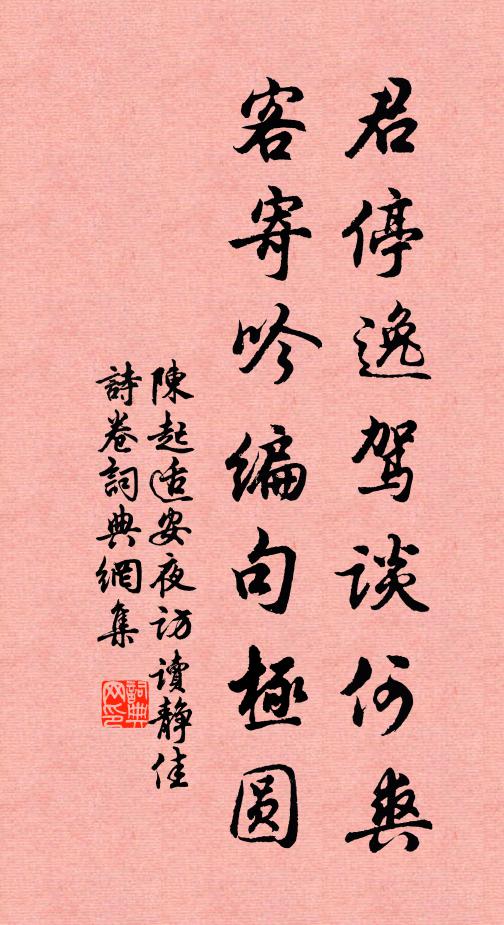 君停逸驾谈何爽
客寄吟编句極圆
陳起适安夜访讀静佳
詩卷詞典網集
詞典网印